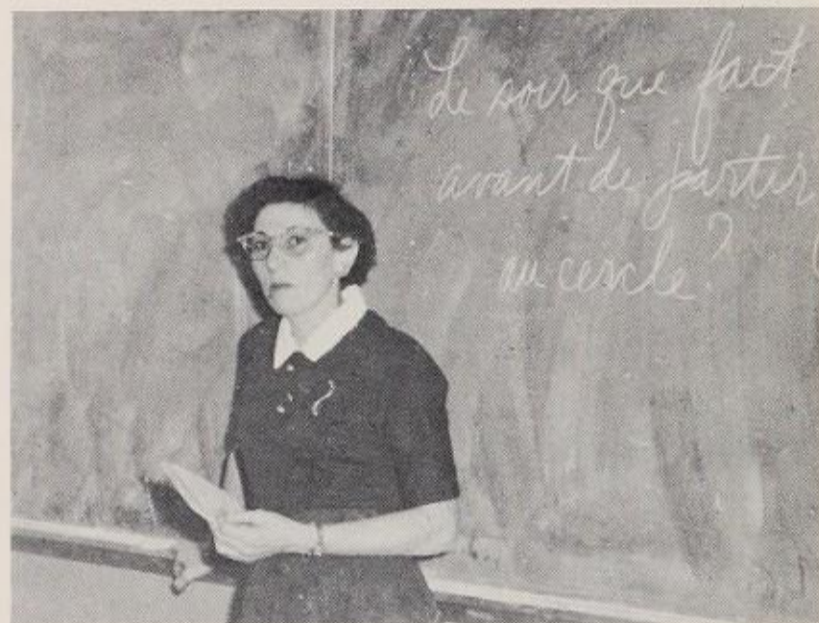 Le soir que fait
avant de partir
au cercle?